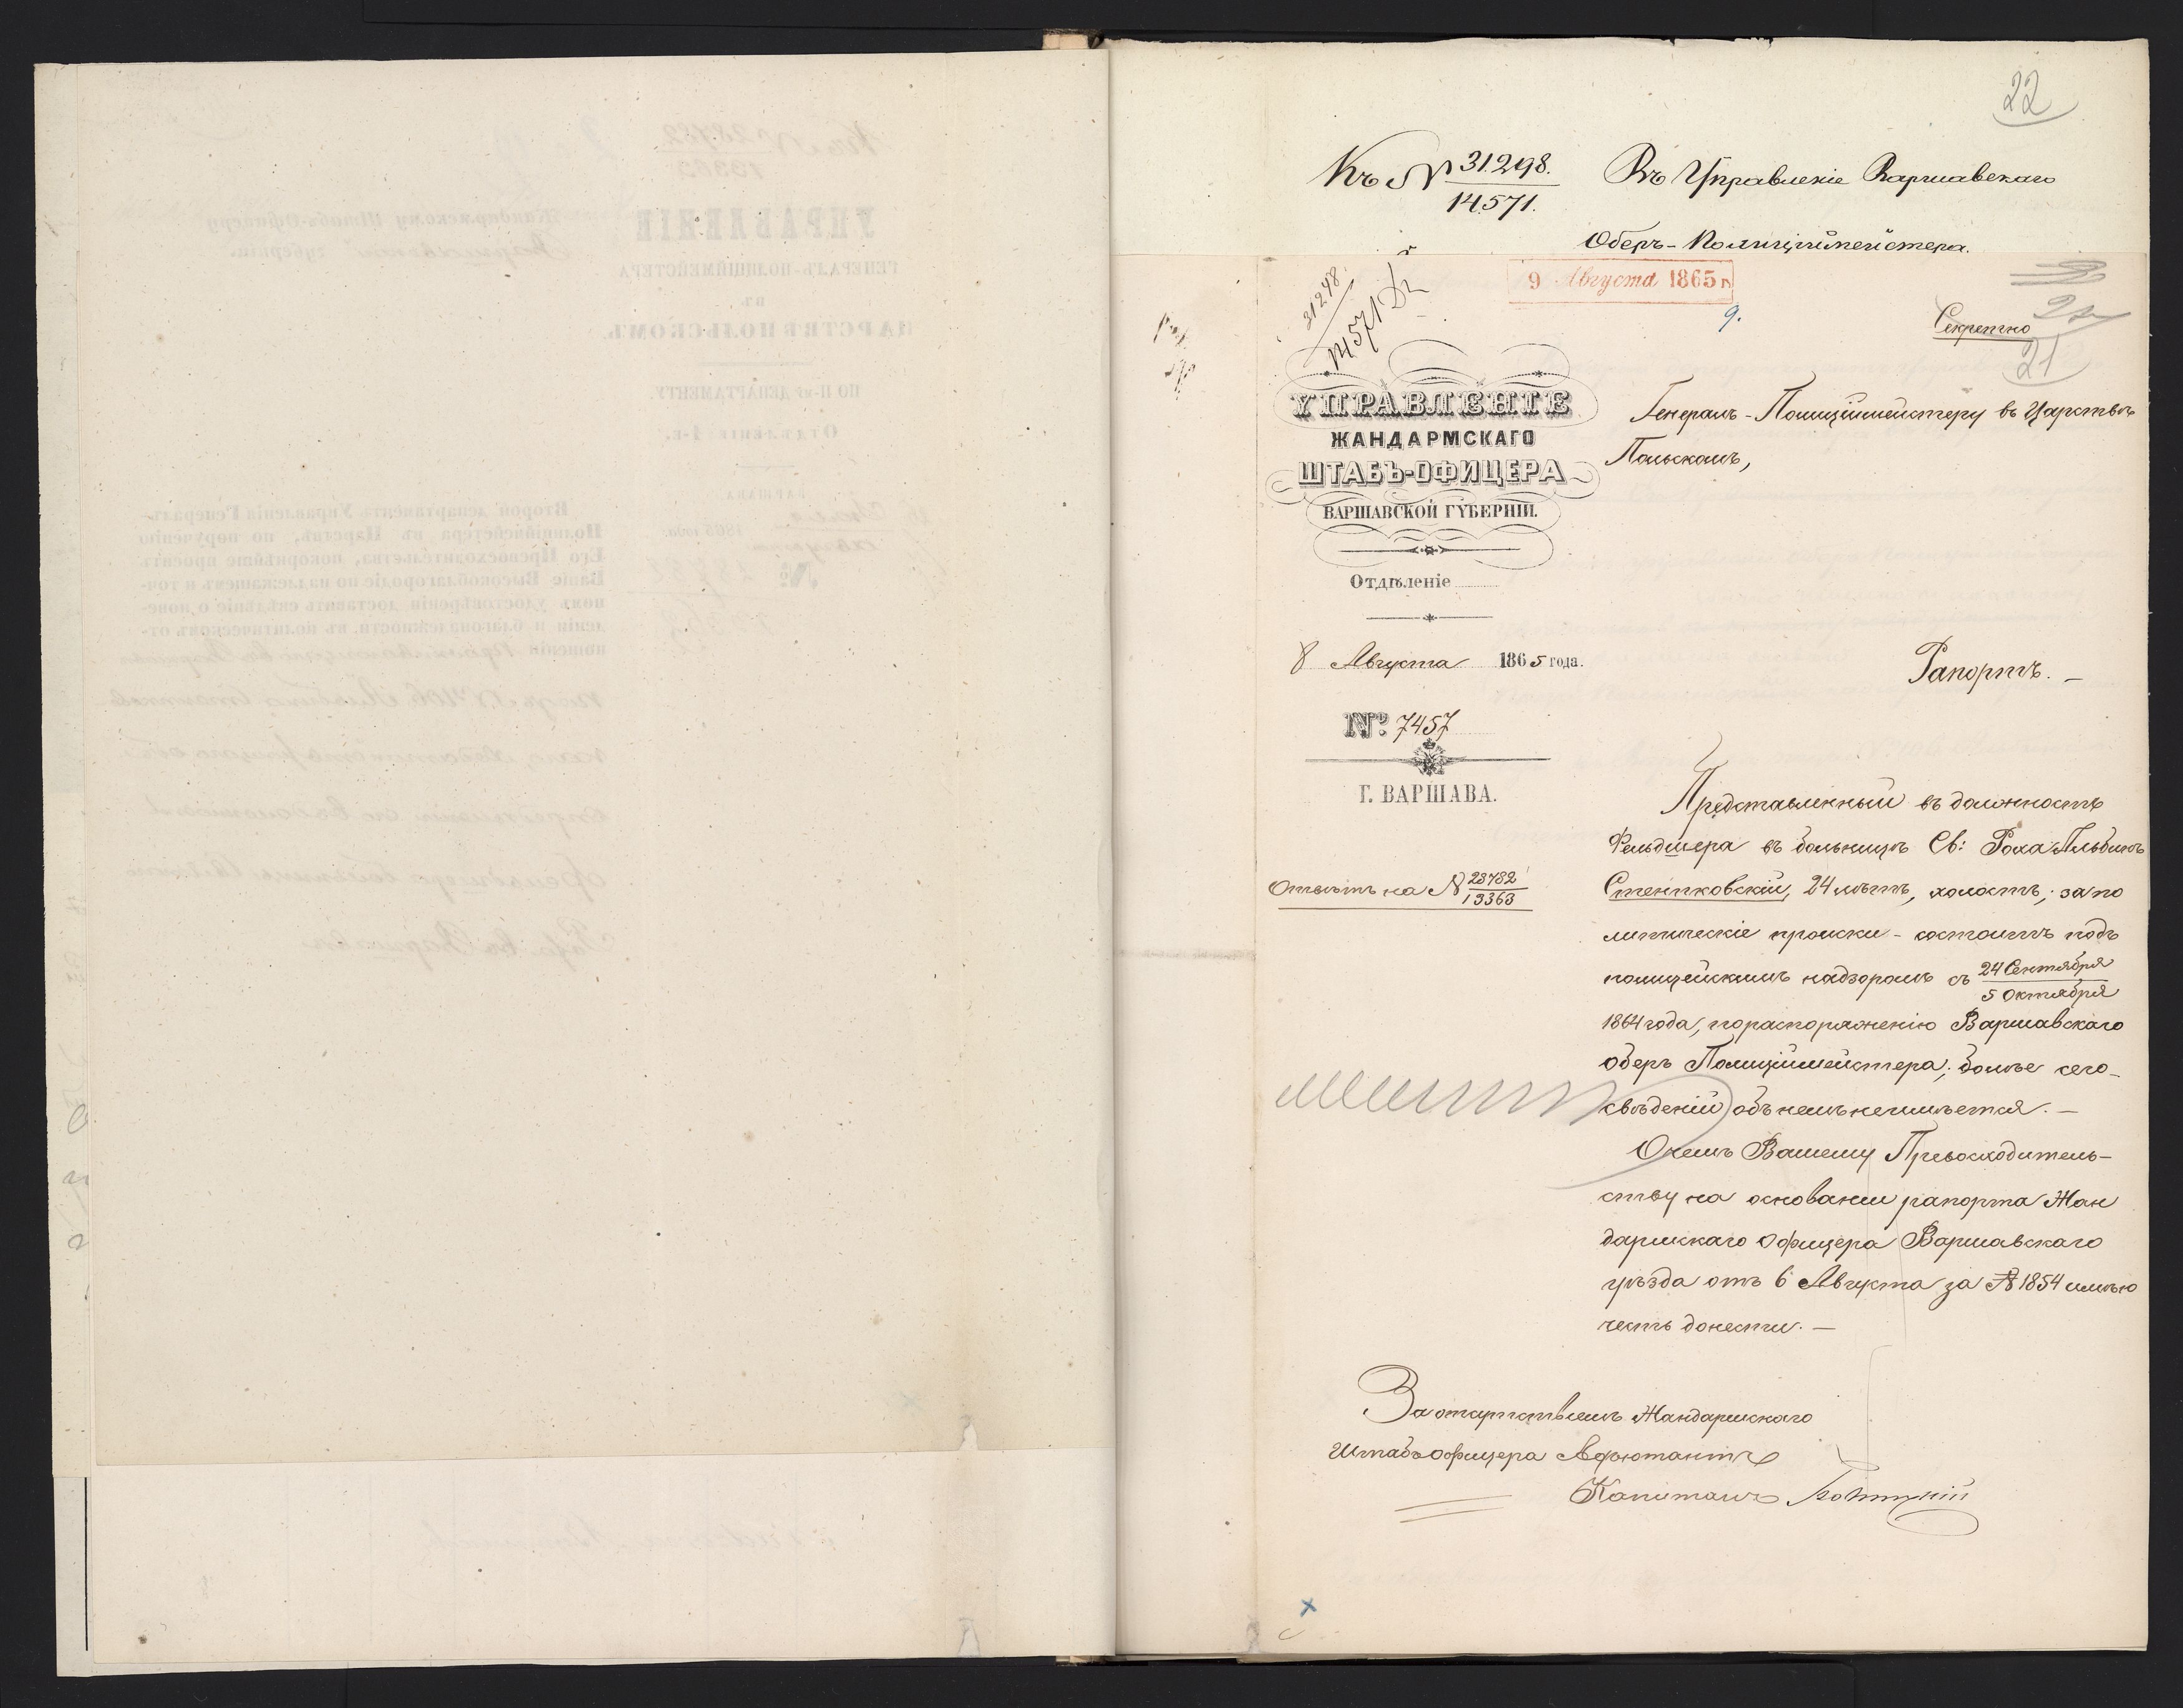 22
Къ № 31.298.
14571.
Въ Управленіе Варшавскаго
Оберъ-Полиціймейстера.
31248
14571
9 Августа 1865 г.
9.
Секретно
21
УПРАВЛЕНІЕ
ЖАНДАРМСКАГО
ШТАБЪ-ОФИЦЕРА
ВАРШАВСКОЙ ГУБЕРНІИ.
Отдѣленіе
8 Августа 1865 года.
№ 7457
Г. ВАРШАВА.
Отвѣтъ на № 28782
13363
Генералъ-Полиціймейстеру въ Царствѣ
Польскомъ,
Рапортъ. —
Представленный въ должность
Фельдшера въ больницѣ Св: Роха Альбинъ
Стентковскій, 24 лѣтъ, холостъ; за по
литическіе происки - состоитъ подъ
полицейскимъ надзоромъ съ 24 Сентября
5 Октября
1864 года, по распоряженію Варшавскаго
Оберъ Полиціймейстера; болѣе сего
свѣденій объ немъ неимѣется. —
О чемъ Вашему Превосходитель-
ству на основаніи рапорта Жан
дармскаго Офицера Варшавскаго
уѣзда отъ 6 Августа за № 1854 имѣю
честь донести. —
За отсутствіемъ Жандармскаго
Штабъ Офицера Адъютантъ
Капитанъ